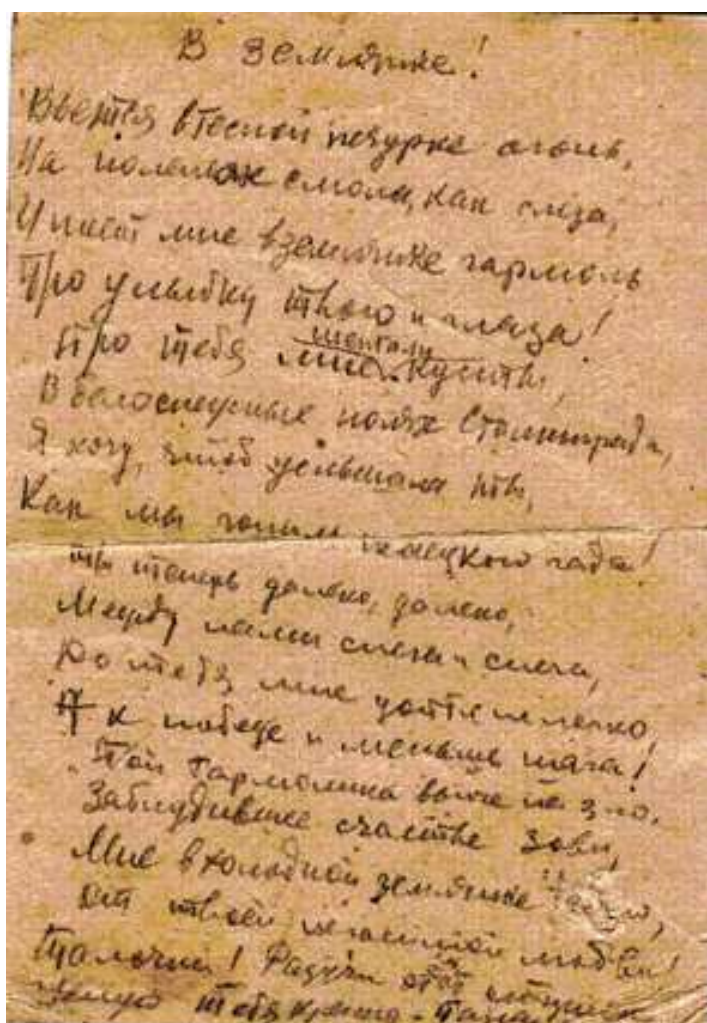 В землянке!
Вьется в тесной печурке огонь,
На поленьях смола, как слеза,
И поет мне в землянке гармонь
Про улыбку твою и глаза!
Про тебя мне шептали кусты,
В белоснежных полях Сталинграда,
Я хочу, чтоб услышала ты,
Как мы гоним немецкого гада!
Ты теперь далеко, далеко,
Между нами снега и снега,
До тебя мне дойти не легко,
А к победе и меньше шага!
Пой гармоника вьюге на зло.
Заблудившее счастье зови,
Мне в холодной землянке тепло,
От твоей негасимой любви!
Талочки! Разучи этот
Целую тебя крепко -